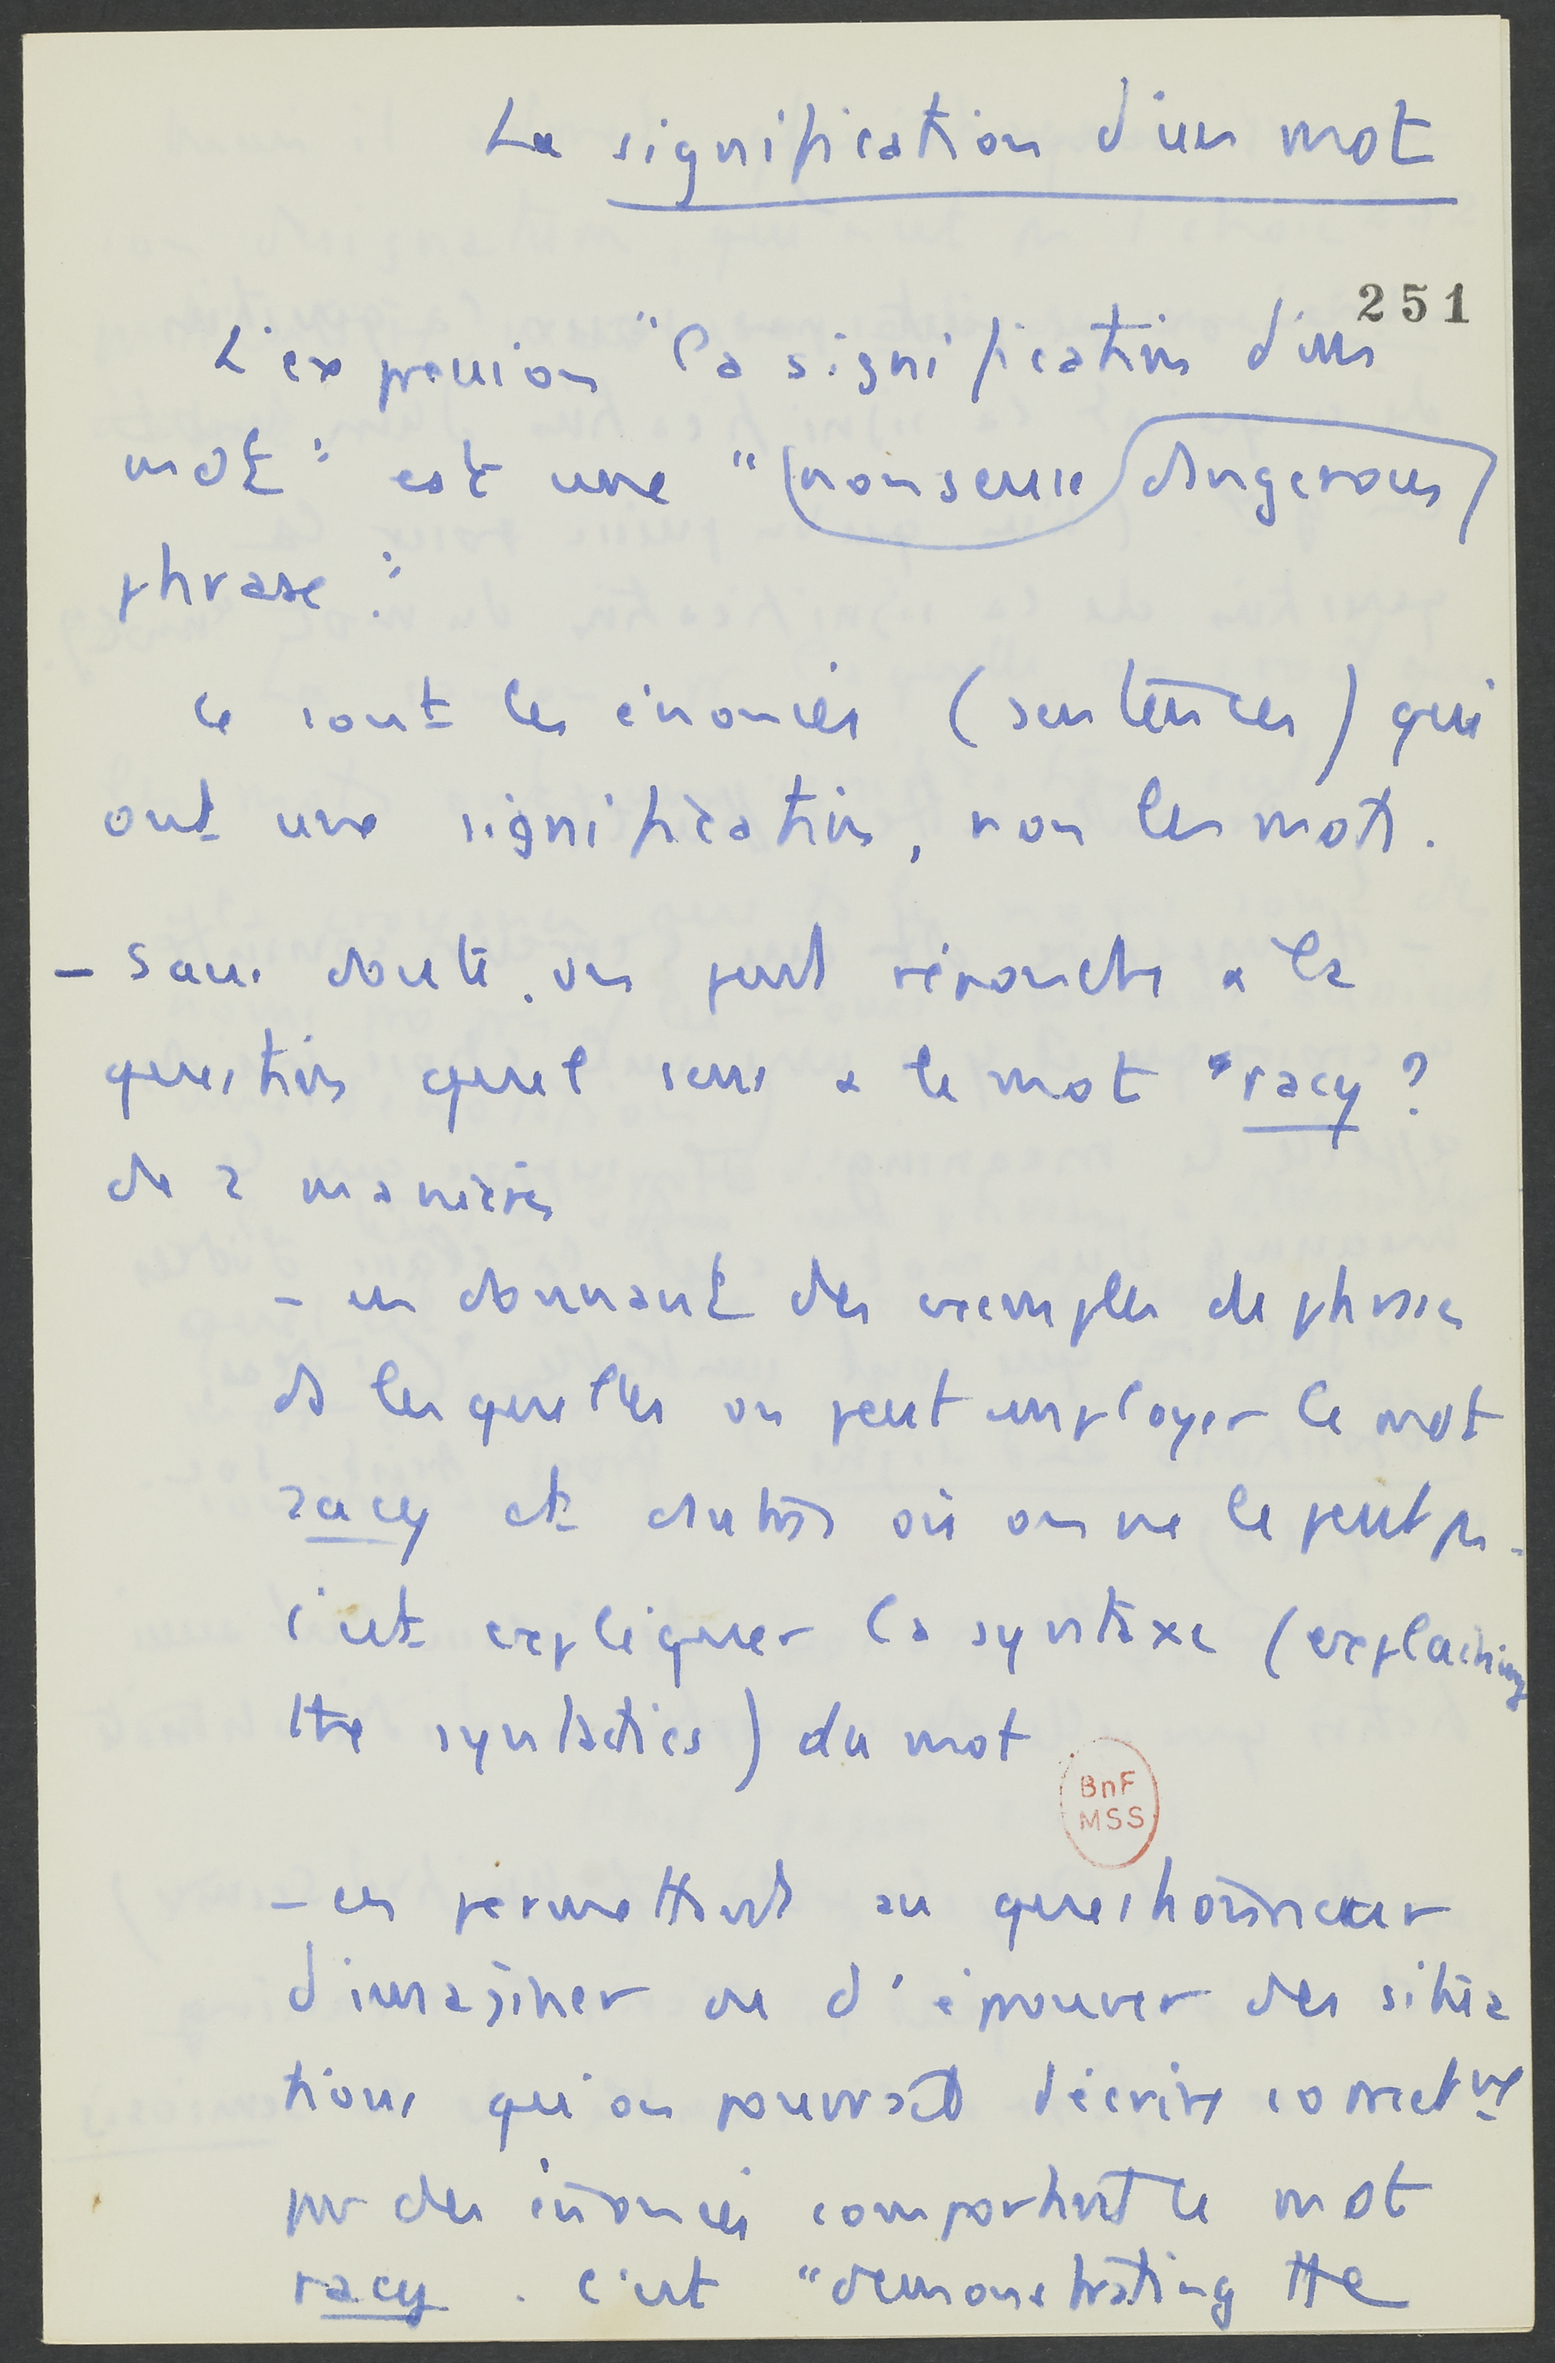 La signification d'un mot
251
L'expression "la signification d'un
mot" est une "nonsense dangerous
phrase".
ce sont les énoncés (sentences) qui
ont une signification, non les mots.
- Sans doute, on peut répondre a la
question quel sens a le mot "racy ?
de 2 manières
- en donnant des exemples de phrases
ds lesquelles on peut employer le mot
racy et d'autres où on ne le peut ps.
c'est expliquer la syntaxe (explaining
the syntactics) du mot
BnF
MSS
- en permettant au questionneur
d'imaginer ou d'éprouver des situa
tions qu'on pourrait décrire correctmt
par des énoncés comportant le mot
racy. c'est "demonstrating the